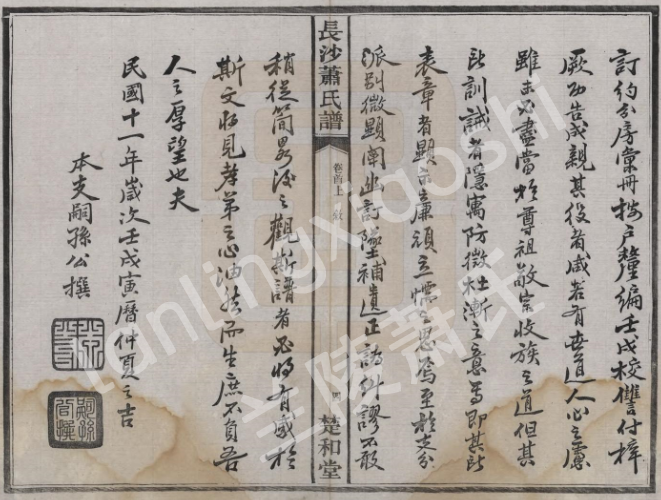 訂約分房彙冊按戶釐編壬戌校讐付梓
厥功告成親其役者咸若有世道人心之慮
雖未必盡當於尊祖敬宗收族之道但其
訓誡者隱寓防微杜漸之意焉即其
表章者顯示廉頑立懦之思焉至於支分
派別微顯闡幽訂墜補遺正譌糾謬不敢
長沙蕭氏譜
卷首上
楚和堂
稍從簡畧後之觀斯譜者必將有感於
斯文將見孝弟之心油然而生庶不負吾
人之厚望也夫
民國十一年歲次壬戌寅曆仲夏之吉
本支嗣孫公撰
lanlingxiaoshi
兰陵萧氏